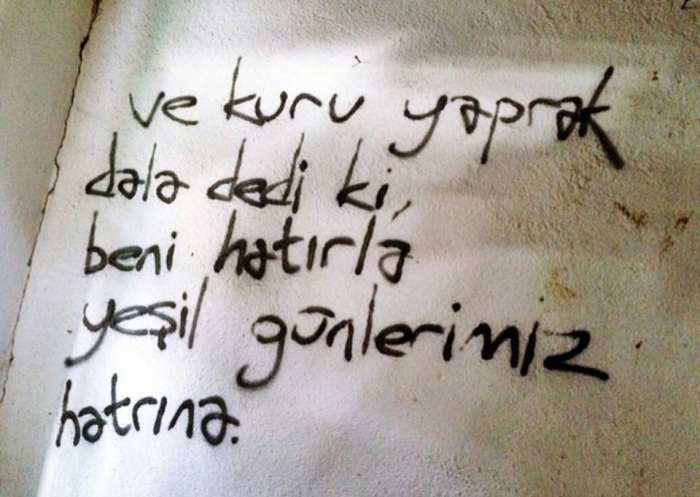 ve kuru yaprak
dala dedi ki,
beni hatırla
yeşil günlerimiz
hatrına.